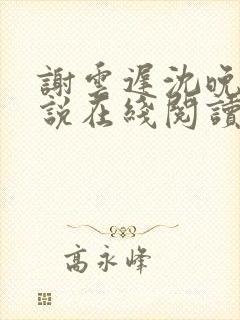 謝雲遲沈晚
說在綫閱讀
高永峰